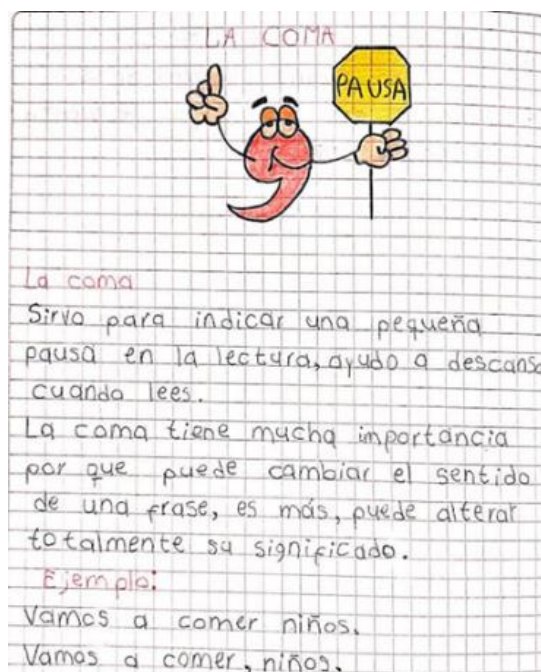 LA COMA
PAUSA
La coma
Sirvo para indicar una pequeña
pausa en la lectura, ayudo a descansa
cuando lees.
La coma tiene mucha importancia
por que puede cambiar el sentido
de una frase, es más, puede alterar
totalmente su significado.
Ejemplo:
Vamos a comer niños.
Vamos a comer, niños.